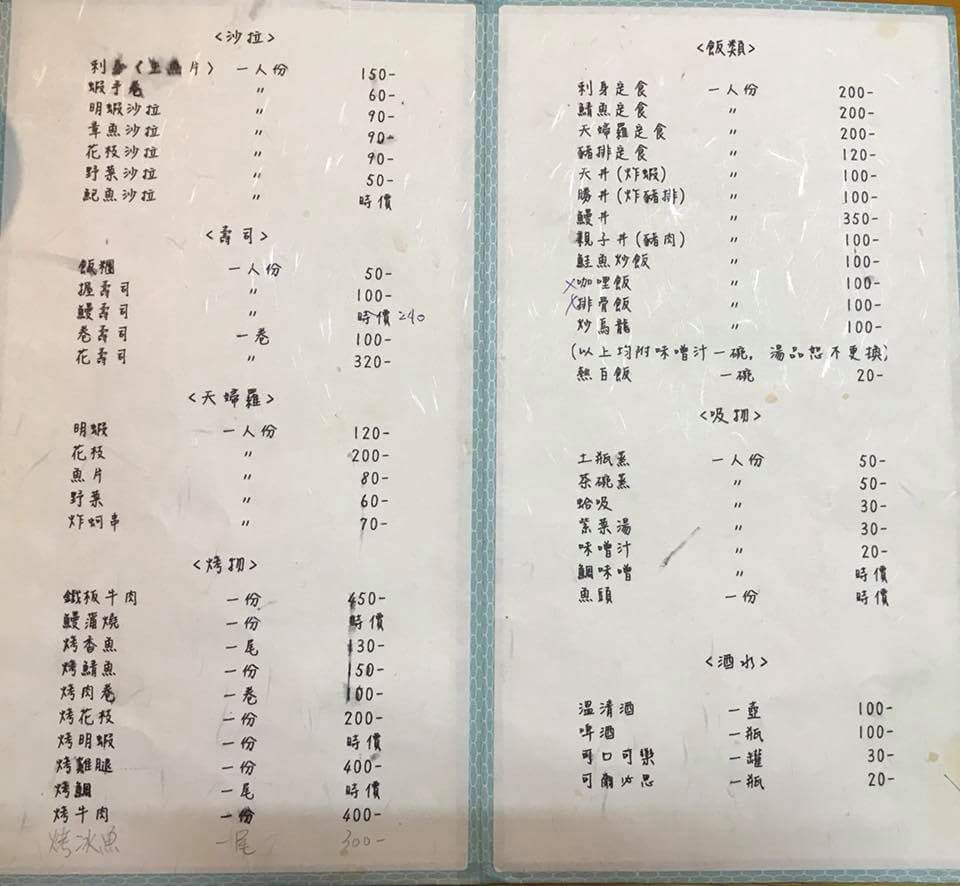 <沙拉>
利身(生魚片) 一人份 150-
蝦手卷 〃 60-
明蝦沙拉 〃 90-
章魚沙拉 〃 90-
花枝沙拉 〃 90-
野菜沙拉 〃 50-
魤魚沙拉 〃 時價
<壽司>
飯糰 一人份 50-
握壽司 〃 100-
鰻壽司 〃 時價 240
卷壽司 一卷 100-
花壽司 〃 320-
<天婦羅>
明蝦 一人份 120-
花枝 〃 200-
魚片 〃 80-
野菜 〃 60-
炸蚵串 〃 70-
<烤物>
鐵板牛肉 一份 450-
鰻蒲燒 一份 時價
烤香魚 一尾 130-
烤鯖魚 一份 150-
烤肉卷 一卷 100-
烤花枝 一份 200-
烤明蝦 一份 時價
烤雞腿 一份 400-
烤鯛 一尾 時價
烤牛肉 一份 400-
烤冰魚 一尾 300-
<飯類>
利身定食 一人份 200-
鯖魚定食 〃 200-
天婦羅定食 〃 200-
豬排定食 〃 120-
天丼(炸蝦) 〃 100-
勝丼(炸豬排) 〃 100-
鰻丼 〃 350-
親子丼(豬肉) 〃 100-
鮭魚炒飯 〃 100-
x咖哩飯 〃 100-
x排骨飯 〃 100-
炒烏龍 〃 100-
(以上均附味噌汁一碗，湯品恕不更換)
熱白飯 一碗 20-
<吸物>
土瓶蒸 一人份 50-
茶碗蒸 〃 50-
蛤吸 〃 30-
紫菜湯 〃 30-
味噌汁 〃 20-
鯛味噌 〃 時價
魚頭 一份 時價
<酒水>
溫清酒 一壺 100-
啤酒 一瓶 100-
可口可樂 一罐 30-
可爾必思 一瓶 20-